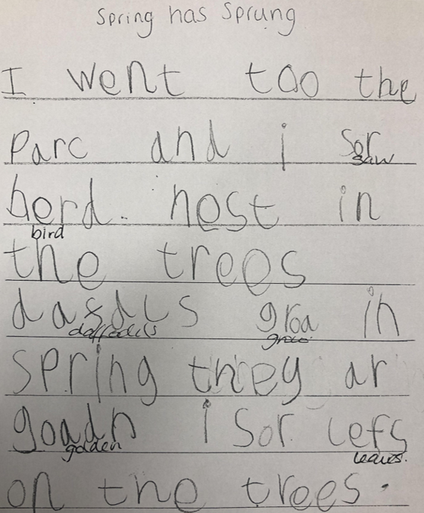 Spring has Sprung
I went too the
Parc and i sor
saw
berd. nest in
bird
the trees
dasdls groa in
daffodils grow
spring they ar
goadn i sor lefs
golden leaves.
on the trees.